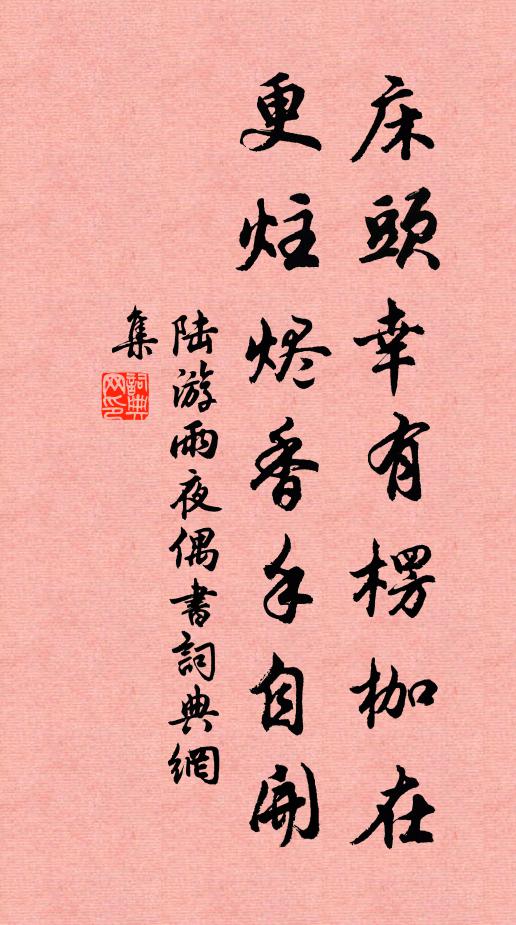 床頭幸有楞枷在
更炷烬香手自開
陆游雨夜偶書詞典網
集
詞典网印